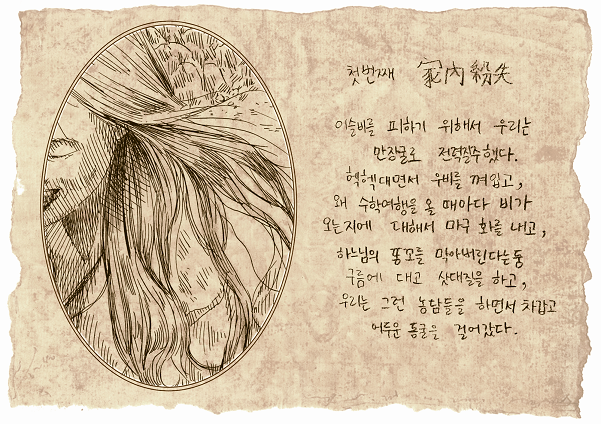 첫번째 家內紛失
이슬비를 피하기 위해서 우리는
만장굴로 전력질주했다.
헥헥대면서 우비를 껴입고,
왜 수학여행을 올 때마다 비가
오는지에 대해서 마구 화를 내고,
하느님의 똥꼬를 막아버린다는둥
구름에 대고 삿대질을 하고,
우리는 그런 농담들을 하면서 차갑고
어두운 동굴을 걸어갔다.